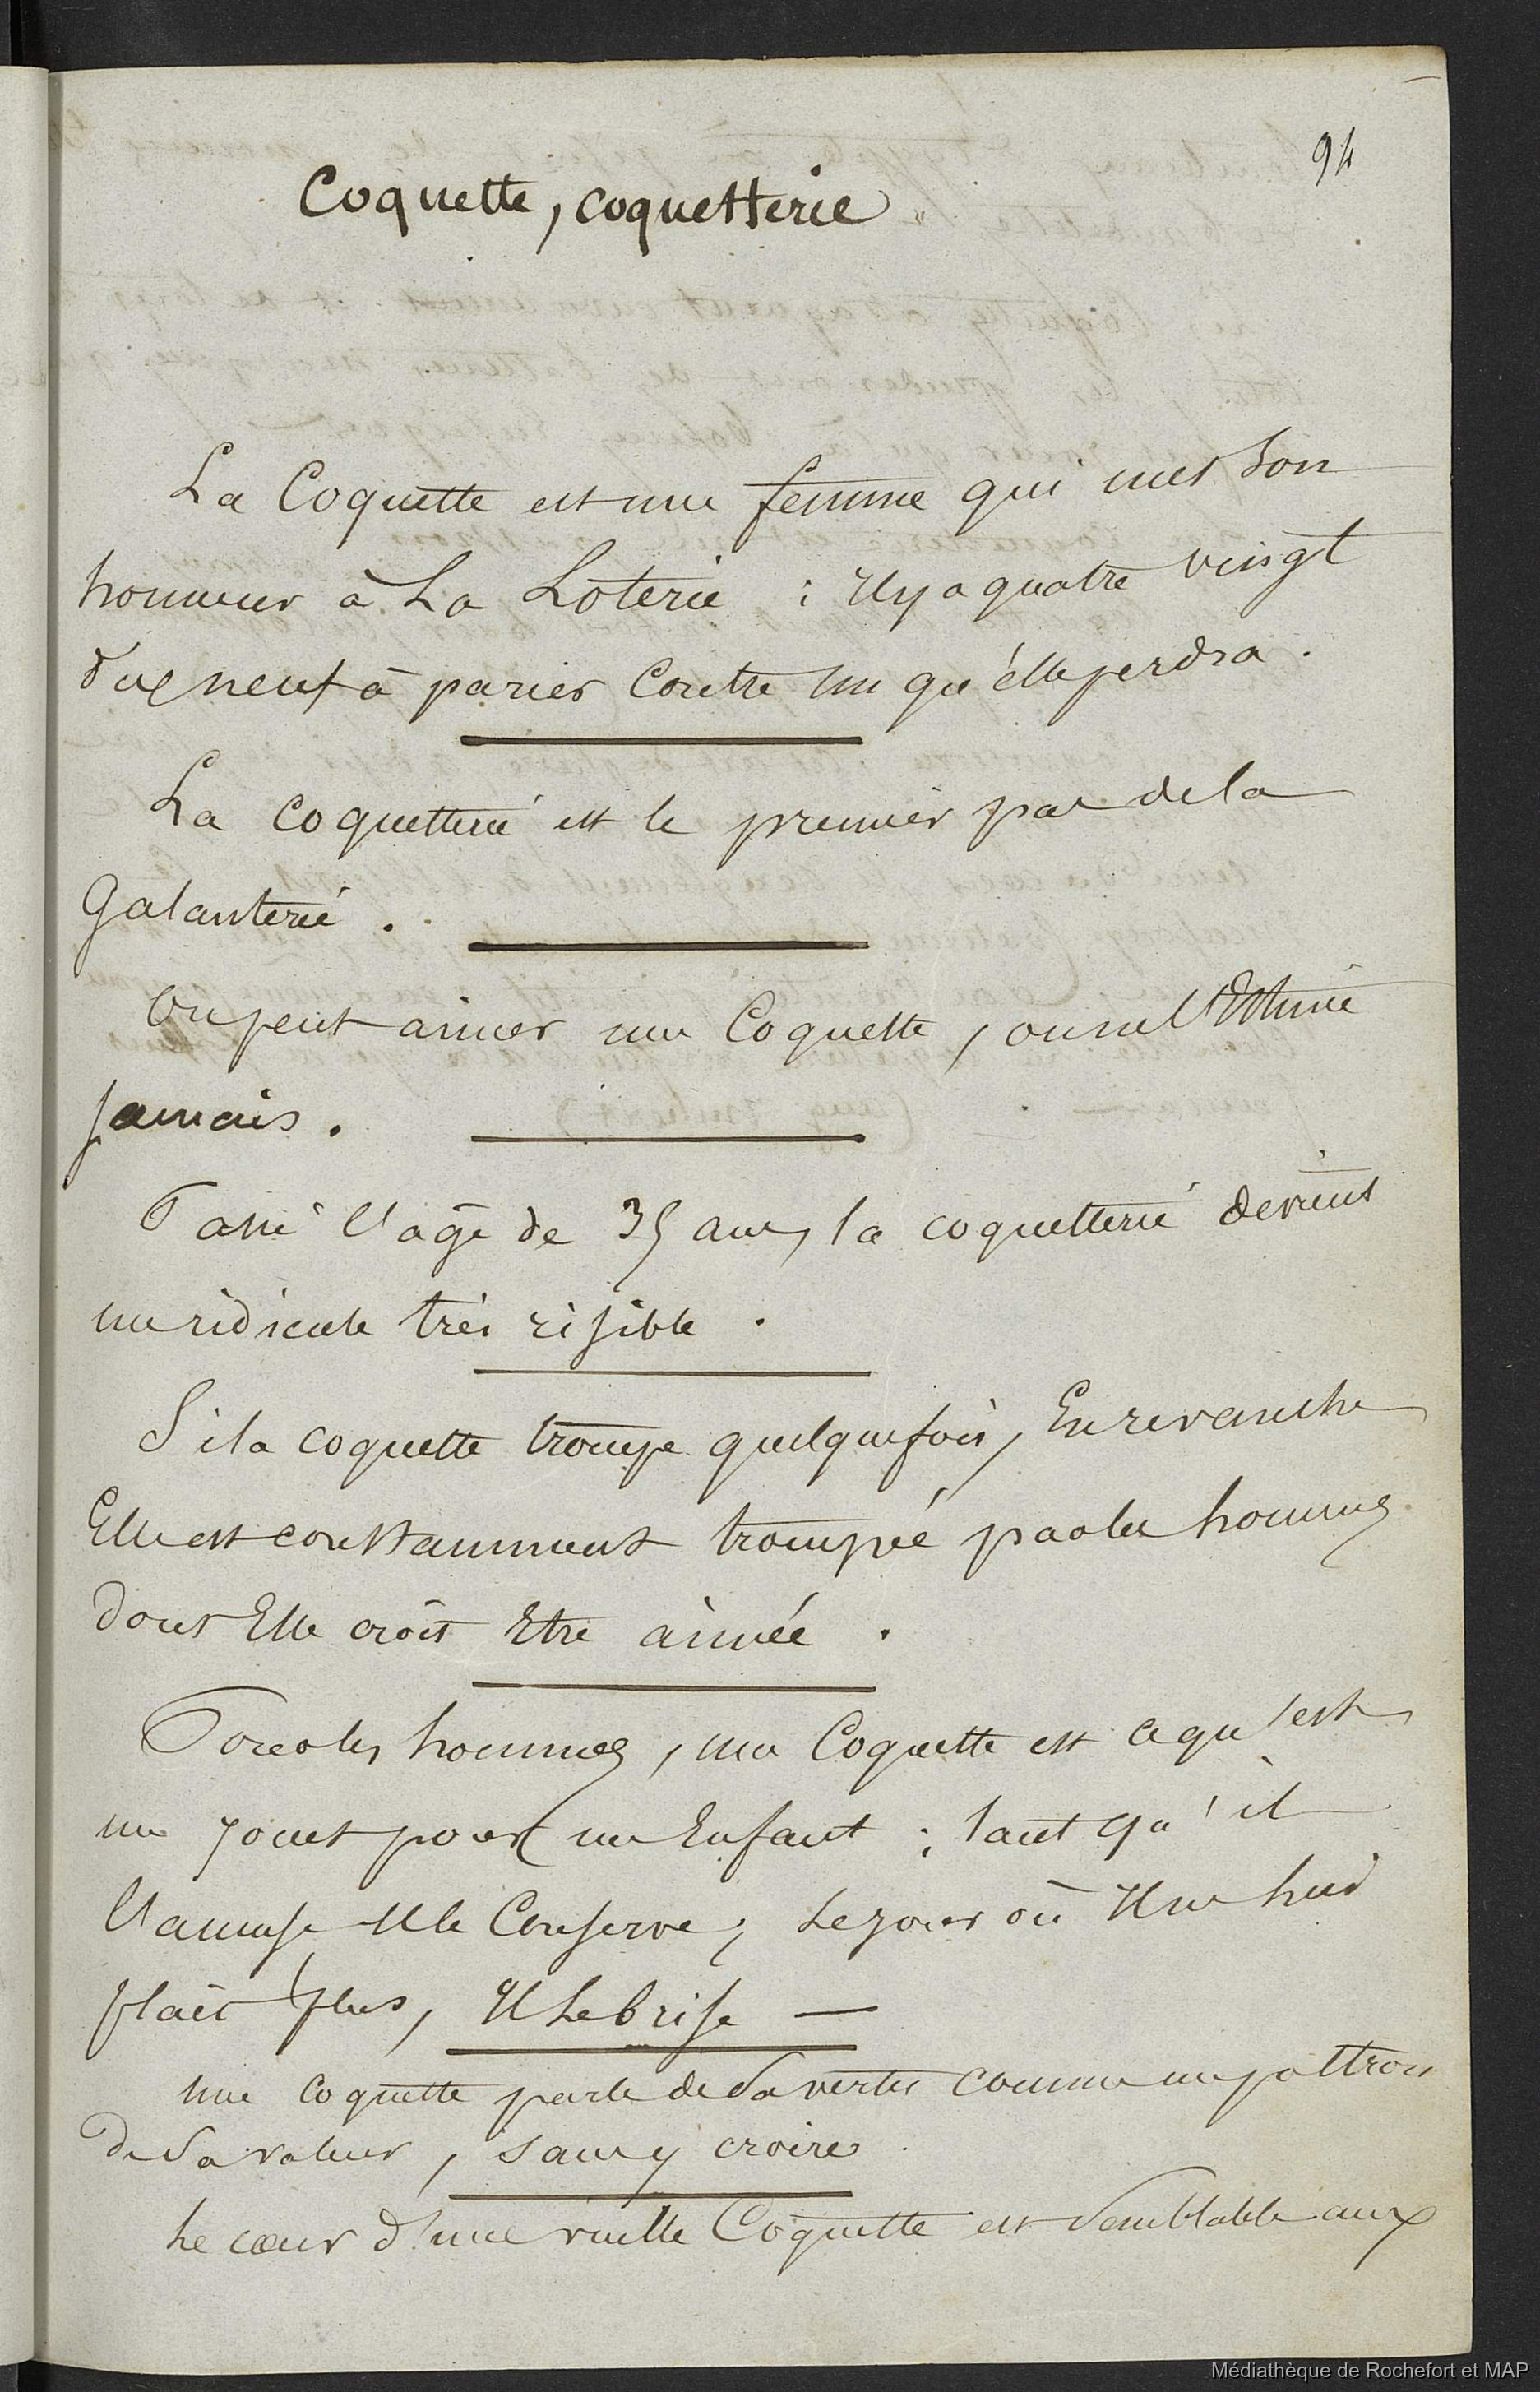 94
Coquette, coquetterie
La Coquette est une femme qui met son
honneur à La Loterie : Il y a quatre vingt
dix neuf à parier Contre un qu'elle perdra.
La coquetterie est le premier pas de la
Galanterie.
On peut aimer une Coquette, on ne l'Estime
jamais.
Passé l'âge de 35 ans, la coquetterie devient
un ridicule très risible.
Si la coquette trompe quelquefois, En revanche
Elle est constamment trompée par les hommes
dont Elle croit Etre aimée.
Pour les hommes, une Coquette est ce qu'est
un jouet pour un Enfant ; tant qu'il
l'amuse Il le Conserve ; Le jour où Il ne lui
plait plus, Il Le brise —
une coquette parle de Sa vertu comme un poltron
de Sa valeur, sans y croire.
Le cœur d'une vieille Coquette est Semblable aux
Médiathèque de Rochefort et MAP